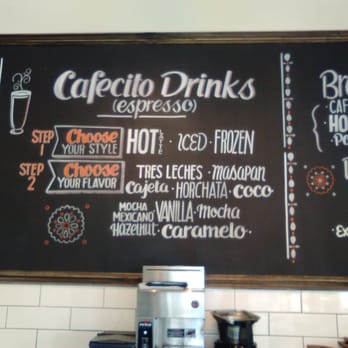 Cafecito Drinks
(espresso)
STEP 1 Choose YOUR STYLE HOT LATTE · ICED · FROZEN
STEP 2 Choose YOUR FLAVOR TRES LECHES · MASAPAN
Cajeta · HORCHATA · COCO
MOCHA MEXICANO · VANILLA · Mocha
Hazelnut · Caramelo
Br
CAF
HO
Po
Ex